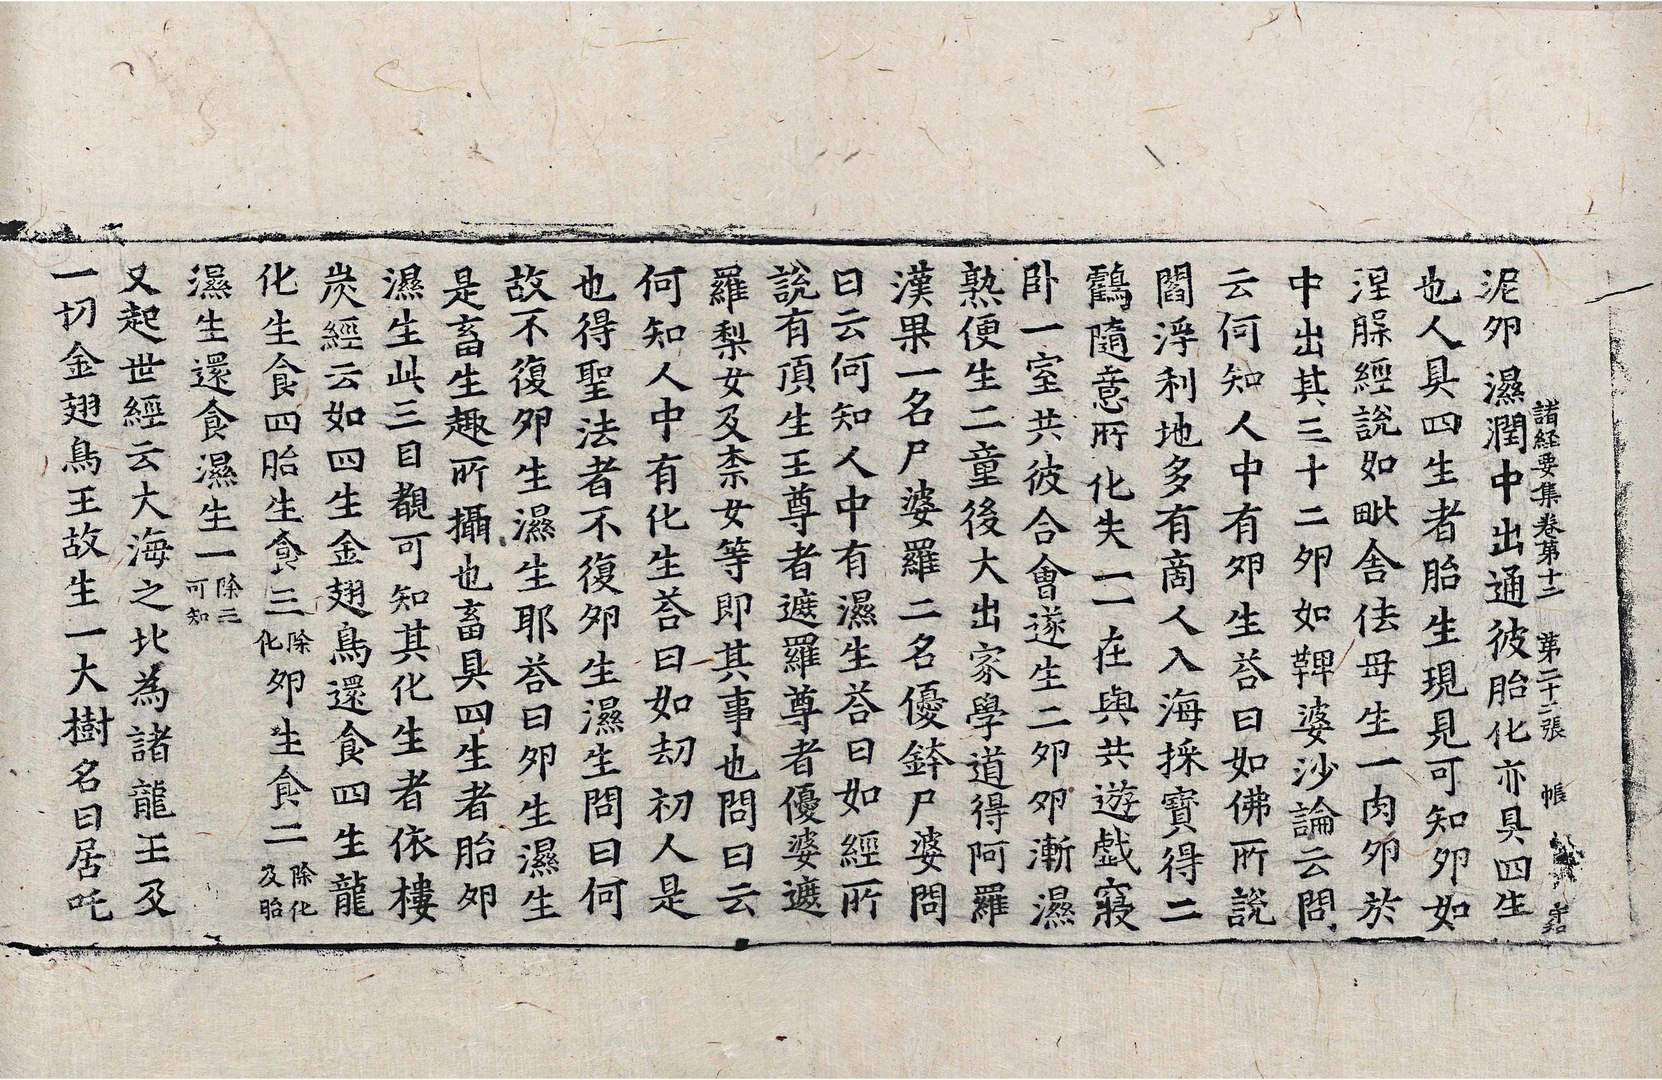 諸経要集卷第十二 第二十二張 帳
泥夘濕潤中出通彼胎化亦具四生
也人具四生者胎生現見可知夘如
涅槃經說如毗舍佉母生一肉夘於
中出其三十二夘如鞞婆沙論云問
云何知人中有夘生荅曰如佛所說
閻浮利地多有商人入海採寶得二
鸖隨意所化失一一在與共遊戲寢
卧一室共彼合會遂生二夘夘漸濕
熟便生二童後大出家學道得阿羅
漢果一名尸婆羅二名優鉢尸婆問
曰云何知人中有濕生荅曰如經所
說有頂生王尊者遮羅尊者優婆遮
羅梨女及柰女等即其事也問曰云
何知人中有化生荅曰如劫初人是
也得聖法者不復夘生濕生問曰何
故不復夘生濕生耶荅曰夘生濕生
是畜生趣所攝也畜具四生者胎夘
濕生此三目覩可知其化生者依樓
炭經云如四生金翅鳥還食四生龍
化生食四胎生食三除化夘生食二除化及胎
濕生還食濕生一除三可知
又起世經云大海之北為諸龍王及
一切金翅鳥王故生一大樹名曰居吒